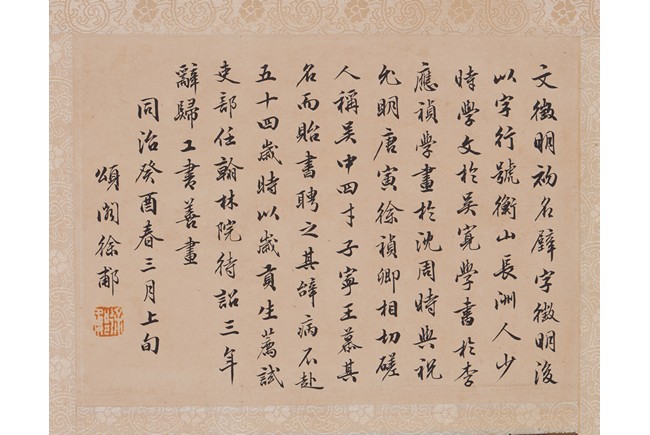 文徵明初名壁字徵明後
以字行號衡山長洲人少
時學文於吳寬學書於李
應禎學畫於沈周時與祝
允明唐寅徐禎卿相切磋
人稱吳中四才子寧王慕其
名而貽書聘之其辭病不赴
五十四歲時以歲貢生薦試
吏部任翰林院待詔三年
辭歸工書善畫
同治癸酉春三月上旬
頌閣徐郙